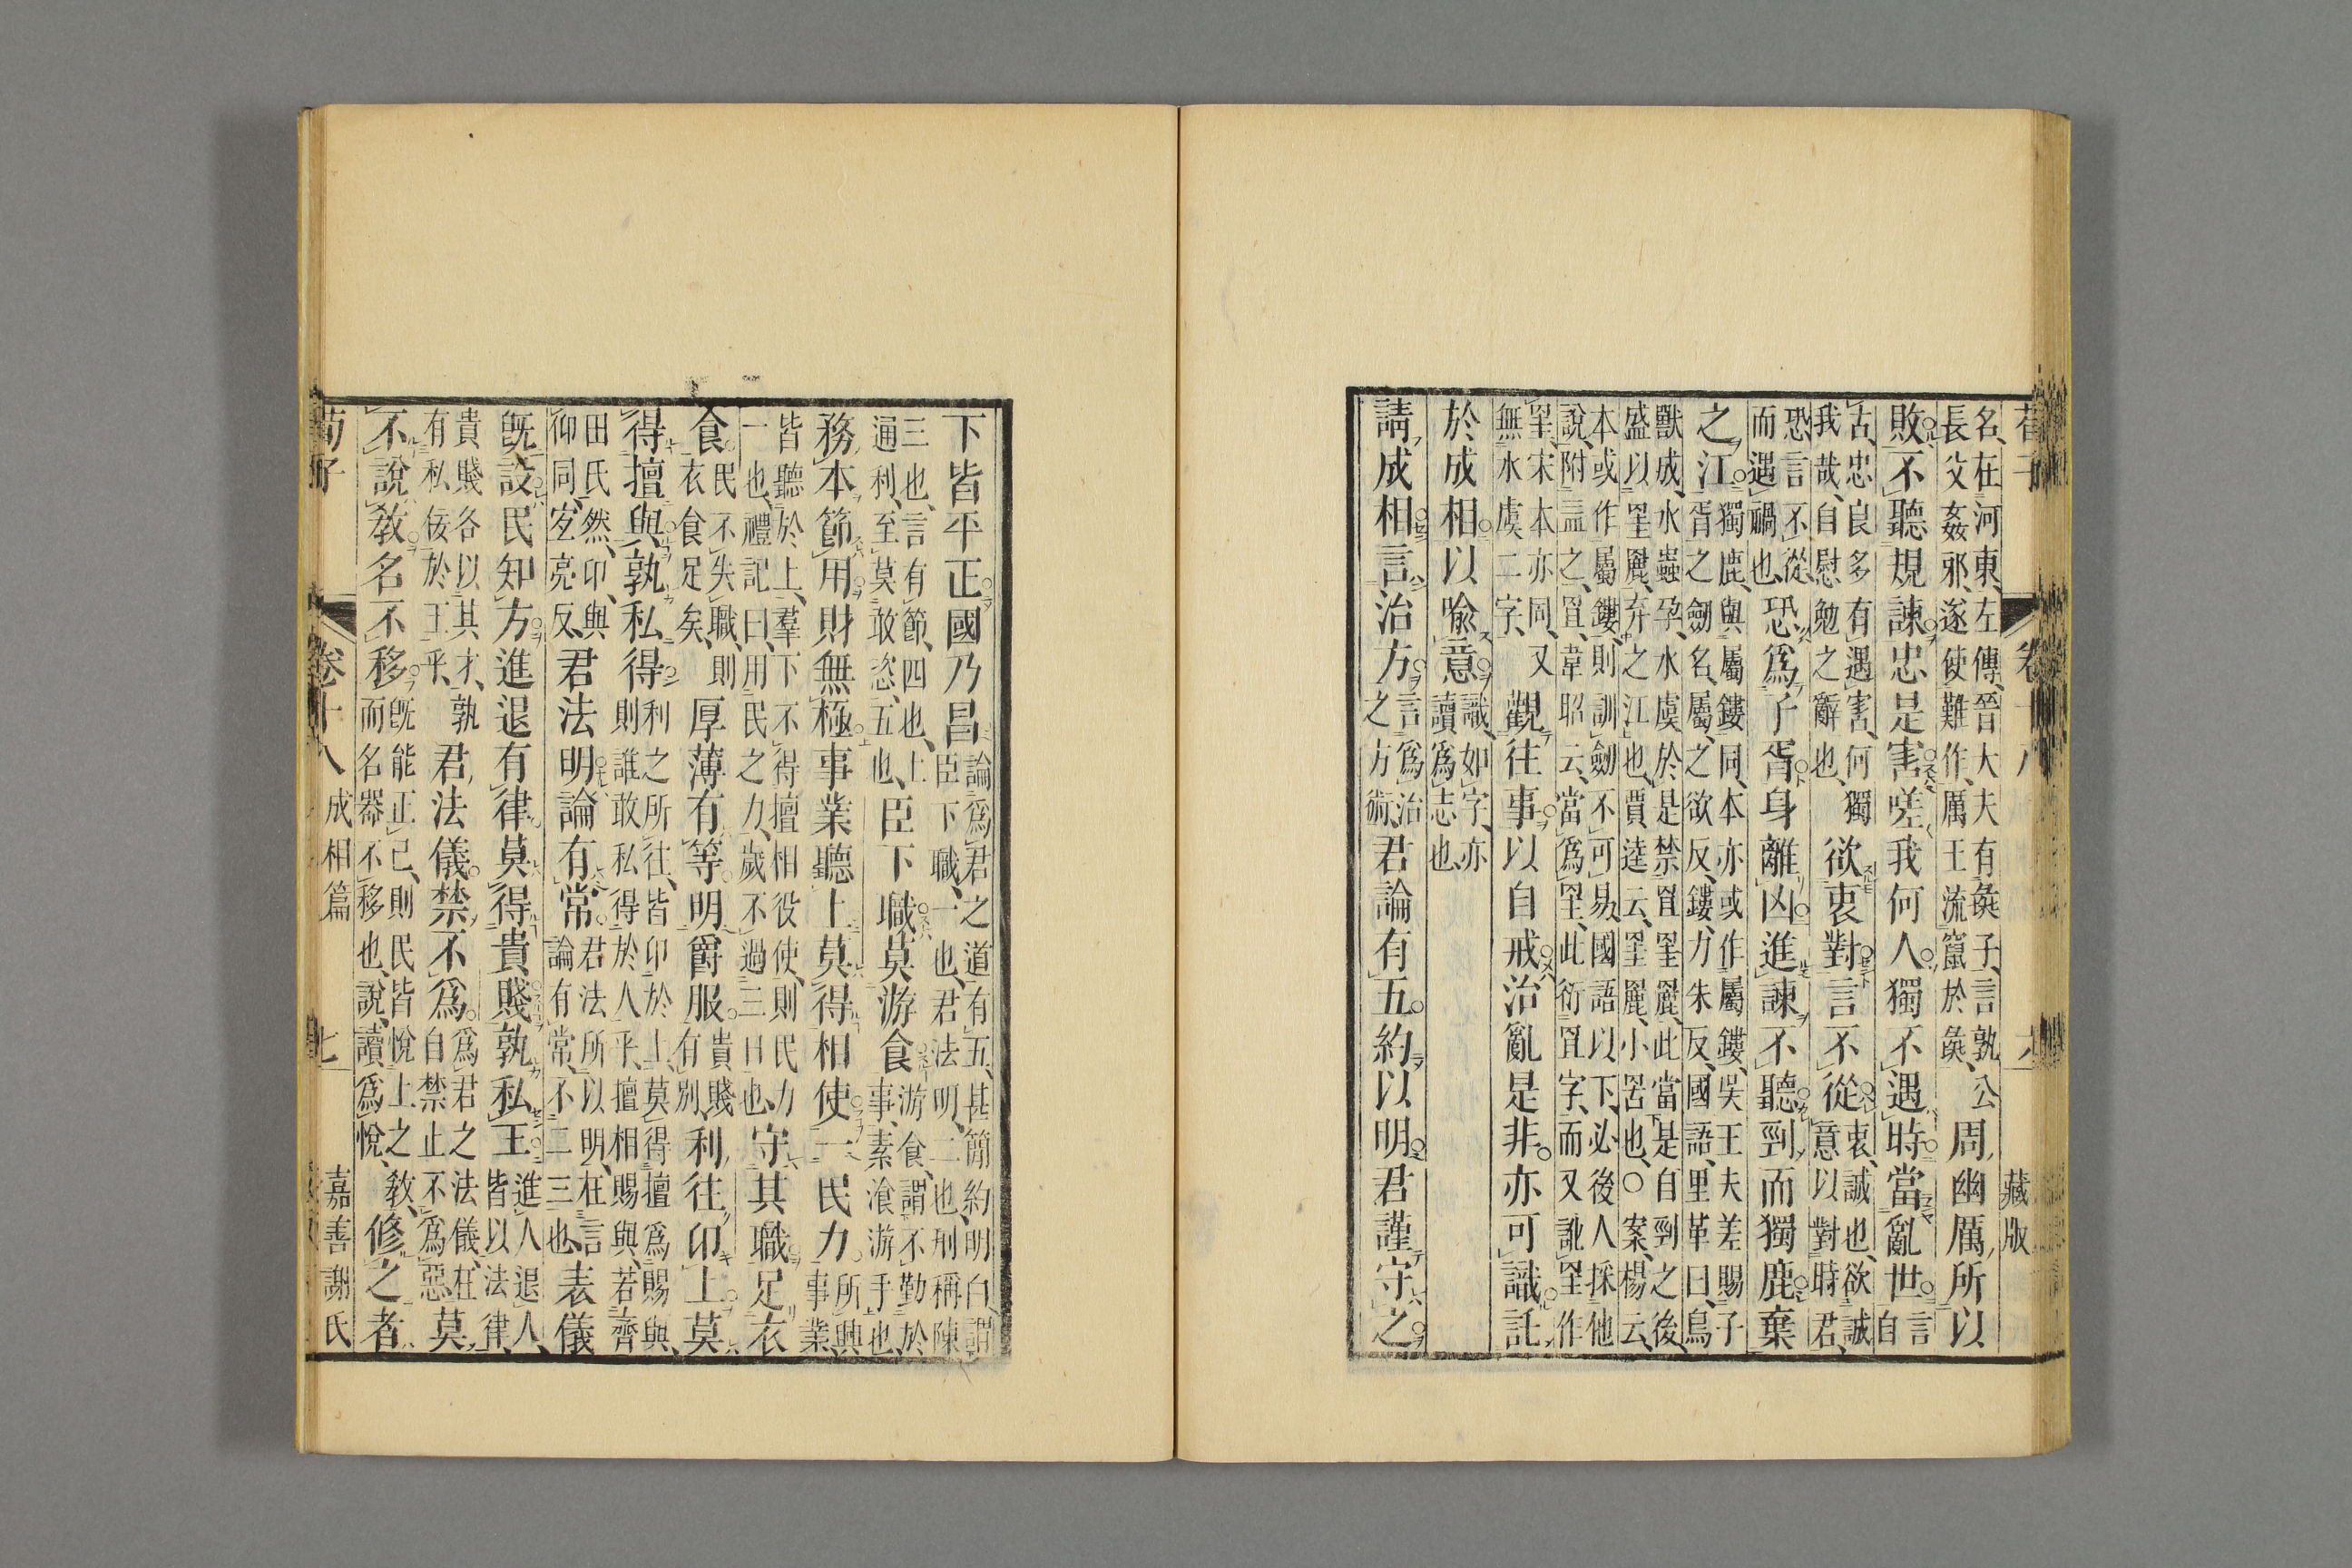 荀子 卷十八 六 藏版
名、在河東、左傳、晉大夫有彘子、言孰公
長父姦邪、遂使難作、厲王流竄於彘、
周幽厲所以
敗不聽規諫忠是害嗟我何人獨不遇時當亂世
言自
古忠良多有遇害、何獨
我哉、自慰勉之辭也、
欲衷對言不從
衷、誠也、欲誠
意以對時君、
恐言不從、
而遇禍也、
恐爲子胥身離凶進諫不聽剄而獨鹿棄
之江
獨鹿、與屬鏤同、本亦或作屬鏤、吳王夫差賜子
胥之劒名、屬、之欲反、鏤、力朱反、國語、里革曰、鳥
獸成、水蟲孕、水虞於是禁罝罜麗、此當是自剄之後、
盛以罜麗、弃之江也、賈逵云、罜麗、小罟也、○案、楊云、
本或作屬鏤、則訓劒不可易、國語以下、必後人採他
說、附益之、罝、韋昭云、當爲罜、此衍罝字、而又訛罜作
罜、宋本亦同、又
無水虞二字、
觀往事以自戒治亂是非亦可識託
於成相以喻意
識、如字、亦
讀爲志也、
請成相言治方
言爲治
之方術、
君論有五約以明君謹守之
下皆平正國乃昌
論爲君之道有五、甚簡約明白、謂
臣下職、一也、君法明、二也、刑稱陳
三也、言有節、四也、上
通利、至莫敢恣、五也、
臣下職莫游食
游食、謂不勤於
事、素飡游手也、
務本節用財無極事業聽上莫得相使一民力
所興
事業、
皆聽於上、羣下不得擅相役使、則民力
一也、禮記曰、用民之力、歲不過三日也、
守其職足衣
食
民不失職、則
衣食足矣、
厚薄有等明爵服
貴賤
有別、
利往卬上莫
得擅與孰私得
利之所往、皆卬於上、莫得擅爲賜與、
則誰敢私得於人乎、擅相賜與、若齊
田氏然、卬、與
仰同、宜亮反、
君法明論有常
君法所以明、在言
論有常、不二三也、
表儀
旣設民知方進退有律莫得貴賤孰私王
進人退人、
皆以法律、
貴賤各以其才、孰
有私佞於王乎、
君法儀禁不爲
爲君之法儀、在
自禁止不爲惡、
莫
不說敎名不移
旣能正己、則民皆悅上之敎、
而名器不移也、說、讀爲悅、
修之者
荀子 卷十八 成相篇 七 嘉善謝氏